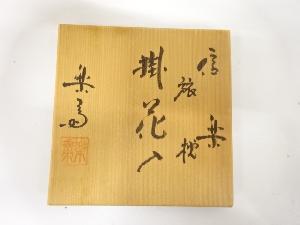 信楽
旅枕
掛花入
楽斎